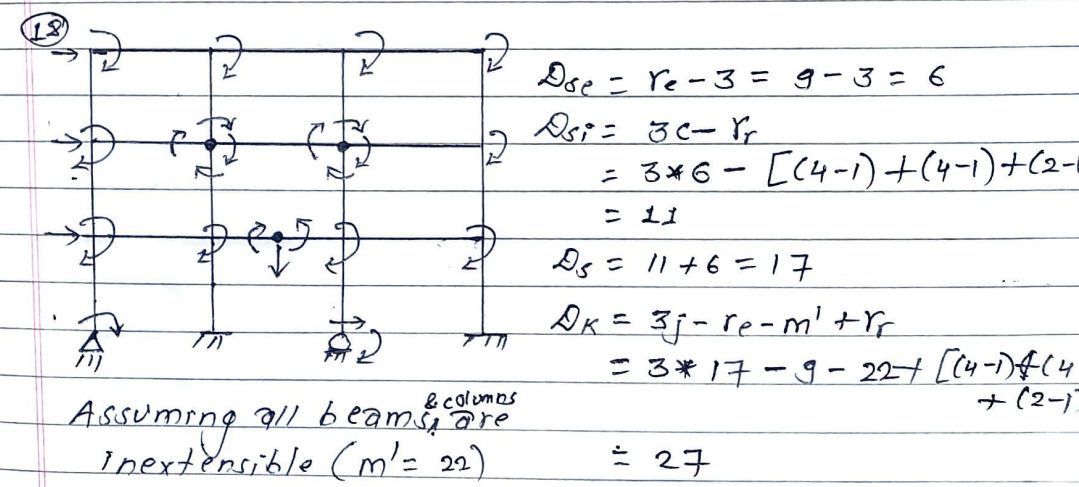 18
Dse = re - 3 = 9 - 3 = 6
Dsi = 3c - rr
= 3*6 - [(4-1)+(4-1)+(2-1
= 11
Ds = 11 + 6 = 17
DK = 3j - re - m' + rr
= 3*17 - 9 - 22 + [(4-1)+(4
+(2-1
Assuming all beams & columns are
inextensible (m' = 22)
= 27